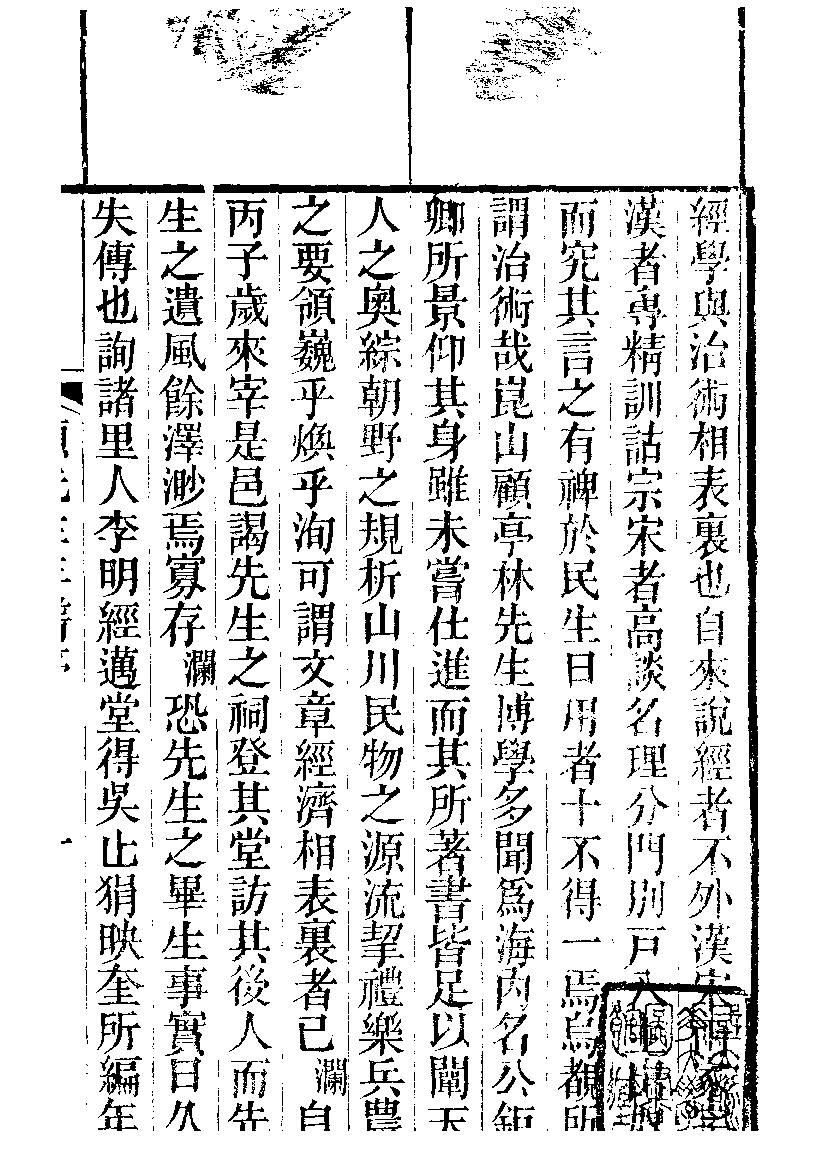 經學與治術相表裏也自來說經者不外漢宋
漢者專精訓詁宗宋者高談名理分門別戶
而究其言之有裨於民生日用者十不得一焉烏覩所
謂治術哉崑山顧亭林先生博學多聞爲海內名公鉅
卿所景仰其身雖未嘗仕進而其所著書皆足以闡天
人之奧綜朝野之規析山川民物之源流挈禮樂兵農
之要領巍乎煥乎洵可謂文章經濟相表裏者已瀾自
丙子歲來宰是邑謁先生之祠登其堂訪其後人而先
生之遺風餘澤渺焉寡存瀾恐先生之畢生事實日久
失傳也詢諸里人李明經邁堂得吳止狷映奎所編年
一